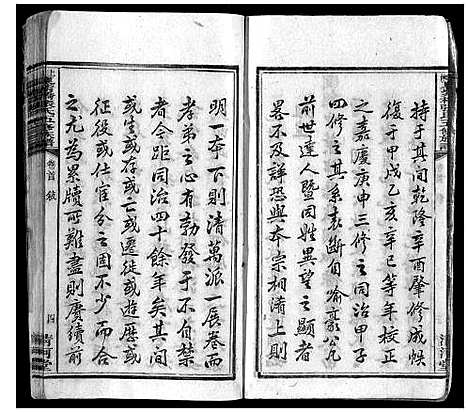 持于其間乾隆辛酉肇修成帙
復于甲戌乙亥辛巳等年校正
之嘉慶庚申三修之同治甲子
四修之其系表斷自喻豪公凡
前世達人暨因姓異望之顯者
畧不及詳恐與本宗相淆上則
明一本下則清萬派一展卷而
孝弟之心有勃發于不自禁
者今距同治四十餘年矣其間
或生或存或亡或遷徙或遊歷或
征役或仕宦分之固不少而合
之尤為累牘所難盡則賡續前
卷首 敍
四
清河堂